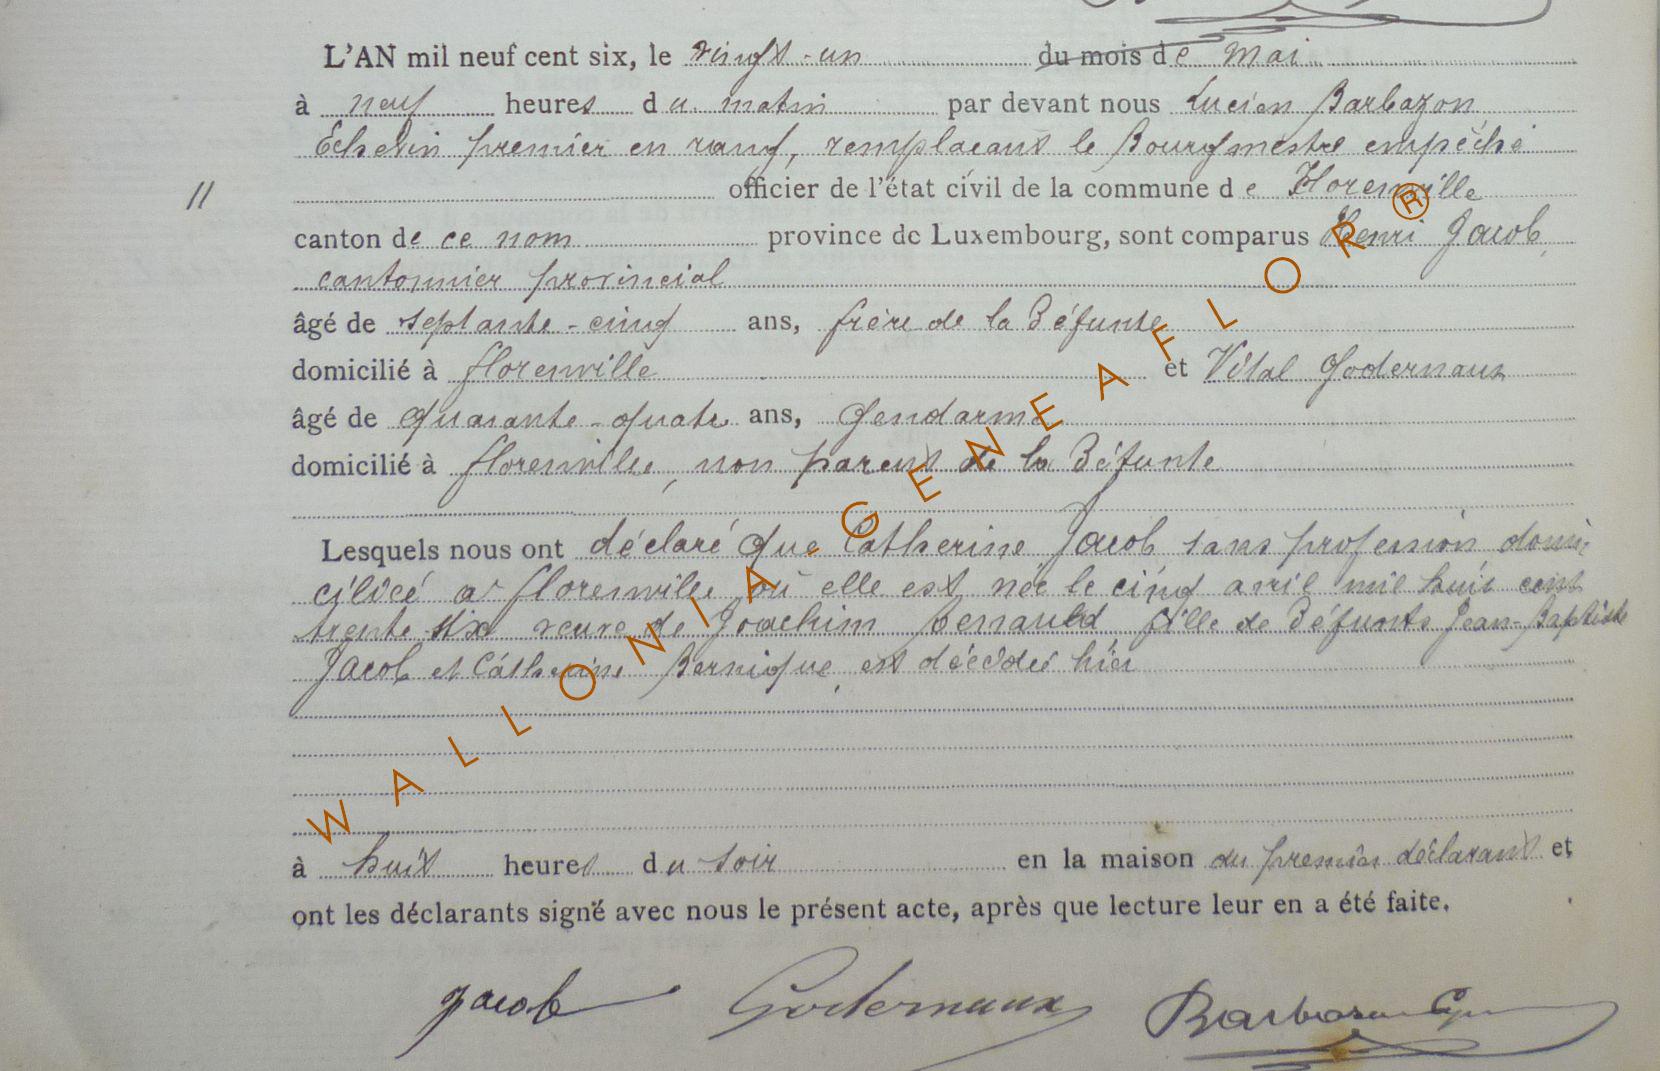 L'AN mil neuf cent six, le vingt-un du mois de mai
à neuf heures du matin par devant nous Lucien Barbazon,
Echevin premier en rang, remplaçant le Bourgmestre empêché
11 officier de l'état civil de la commune de Florenville
canton de ce nom province de Luxembourg, sont comparus Henri Jacob,
cantonnier provincial
âgé de septante-cinq ans, frère de la Défunte
domicilié à florenville et Vital Godernaux
âgé de quarante-quatre ans, Gendarme
domicilié à florenville, non parent de la Défunte
Lesquels nous ont déclaré que Catherine Jacob sans profession domi-
ciliée à florenville où elle est née le cinq avril mil huit cent
trente six veuve de Joachim Renauld fille de Défunts Jean-Baptiste
Jacob et Catherine Bernique, est décédée hier
à huit heures du soir en la maison du premier déclarant et
ont les déclarants signé avec nous le présent acte, après que lecture leur en a été faite.
Jacob Godernaux Barbazon
WALLONIA-GENEAFLOR®